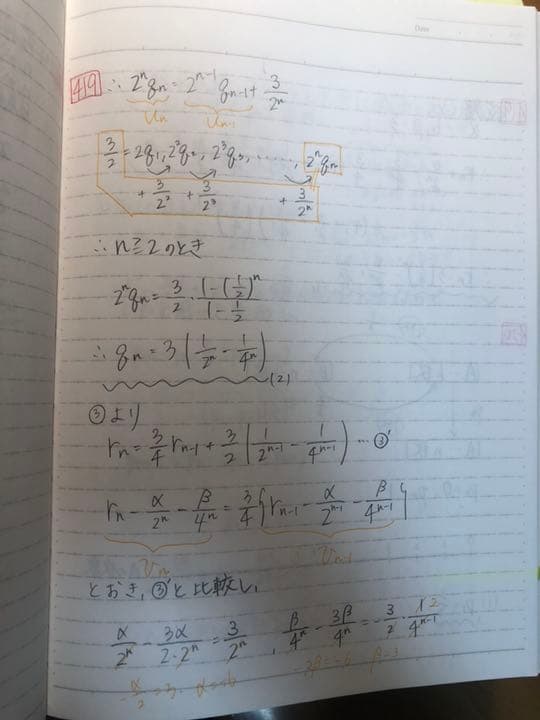 Date
419 ∴ 2^n q_n = 2^{n-1} q_{n-1} + 3/2^n
U_n U_{n-1}
3/2 = 2q_1, 2^2 q_2, 2^3 q_3, ……, 2^n q_n
+ 3/2^2 + 3/2^3 + 3/2^n
∴ n ≧ 2 のとき
2^n q_n = 3/2 · (1 - (1/2)^n) / (1 - 1/2)
∴ q_n = 3 (1/2^n - 1/4^n)
(2)
③より
r_n = 3/4 r_{n-1} + 3/2 (1/2^{n-1} - 1/4^{n-1}) … ③'
r_n - α/2^n - β/4^n = 3/4 { r_{n-1} - α/2^{n-1} - β/4^{n-1} }
V_n V_{n-1}
とおき, ③'と比較し,
α/2^n - 3α/(2·2^n) = 3/2^n , β/4^n - 3β/4^n = -3/2 · 1/4^{n-1}
-α/2 = 3 α = -6 β = 3